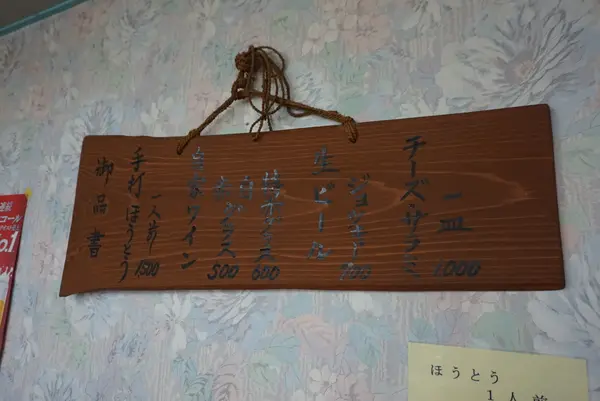 御品書
手打ほうとう
一人前 1500
自家ワイン
グラス 500
グラス 600
生ビール
ジョッキ 700
チーズ・サラミ
一皿 1000
ほうとう
1人前
コール
o.1